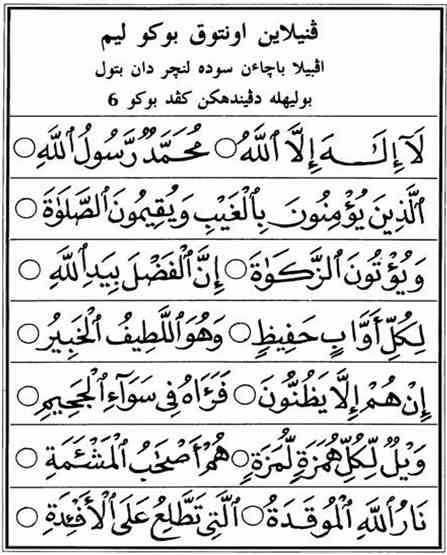 ڤنيلاين اونتوق بوكو ليم
اڤبيلا باچاءن سوده لنچر دان بتول
بوليهله دڤيندهكن كڤد بوكو 6
لَآ إِلَـٰهَ إِلَّا ٱللَّهُ ○ مُحَمَّدٌ رَّسُولُ ٱللَّهِ ○
ٱلَّذِينَ يُؤْمِنُونَ بِٱلْغَيْبِ وَيُقِيمُونَ ٱلصَّلَوٰةَ ○
وَيُؤْتُونَ ٱلزَّكَوٰةَ ○ إِنَّ ٱلْفَضْلَ بِيَدِ ٱللَّهِ ○
لِكُلِّ أَوَّابٍ حَفِيظٍ ○ وَهُوَ ٱللَّطِيفُ ٱلْخَبِيرُ ○
إِنْ هُمْ إِلَّا يَظُنُّونَ ○ فَرَآهُ فِى سَوَآءِ ٱلْجَحِيمِ ○
وَيْلٌ لِّكُلِّ هُمَزَةٍ لُّمَزَةٍ ○ هُمْ أَصْحَٰبُ ٱلْمَشْـَٔمَةِ ○
نَارُ ٱللَّهِ ٱلْمُوقَدَةُ ○ ٱلَّتِى تَطَّلِعُ عَلَى ٱلْأَفْـِٔدَةِ ○